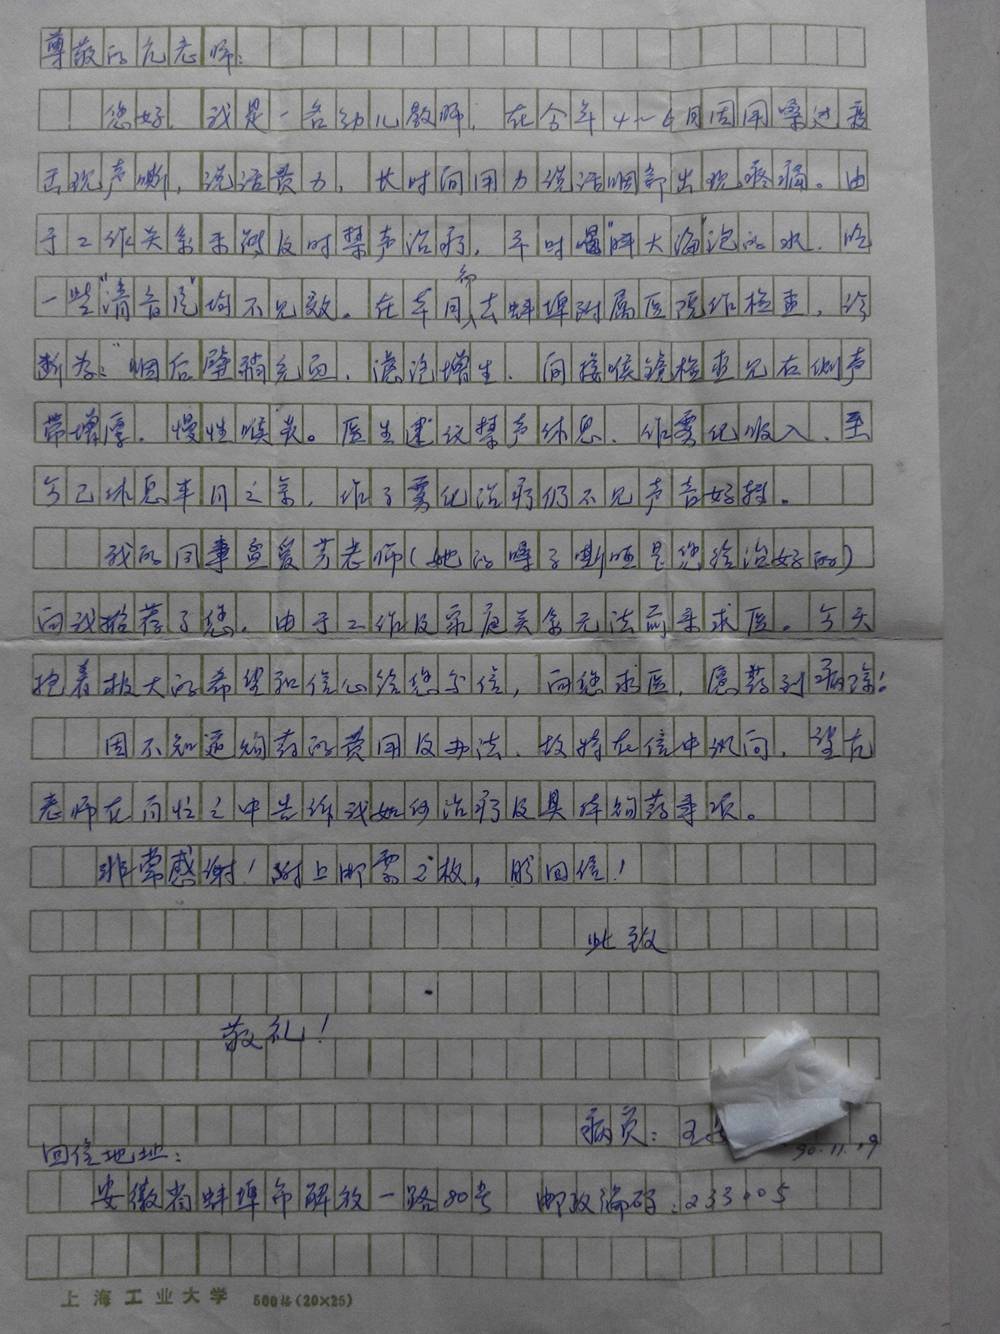 尊敬的亢老师:
您好，我是一名幼儿教师，在今年4~6月因用嗓过度
出现声嘶，说话费力，长时间用力说话咽部出现疼痛。由
于工作关系未能及时禁声治疗，平时喝"胖大海"泡的水，吃
一些"清音丸"均不见效。在半月前去蚌埠附属医院作检查，诊
断为："咽后壁稍充血，滤泡增生，间接喉镜检查见右侧声
带增厚，慢性喉炎。医生建议禁声休息，作雾化吸入，至
今已休息半月之余，作了雾化治疗仍不见声音好转。
我的同事孟爱芳老师(她的嗓子嘶哑是您给治好的)
向我推荐了您，由于工作及家庭关系无法前来求医。今天
抱着极大的希望和信心给您写信，向您求医，愿药到病除！
因不知道购药的费用及办法，故特在信中询问，望亢
老师在百忙之中告诉我如何治疗及具体购药事项。
非常感谢！附上邮票2枚，盼回信！
此致
敬礼！
病员：王
90.11.19
回信地址：
安徽省蚌埠市解放一路80号 邮政编码：233
上海工业大学 500格(20×25)